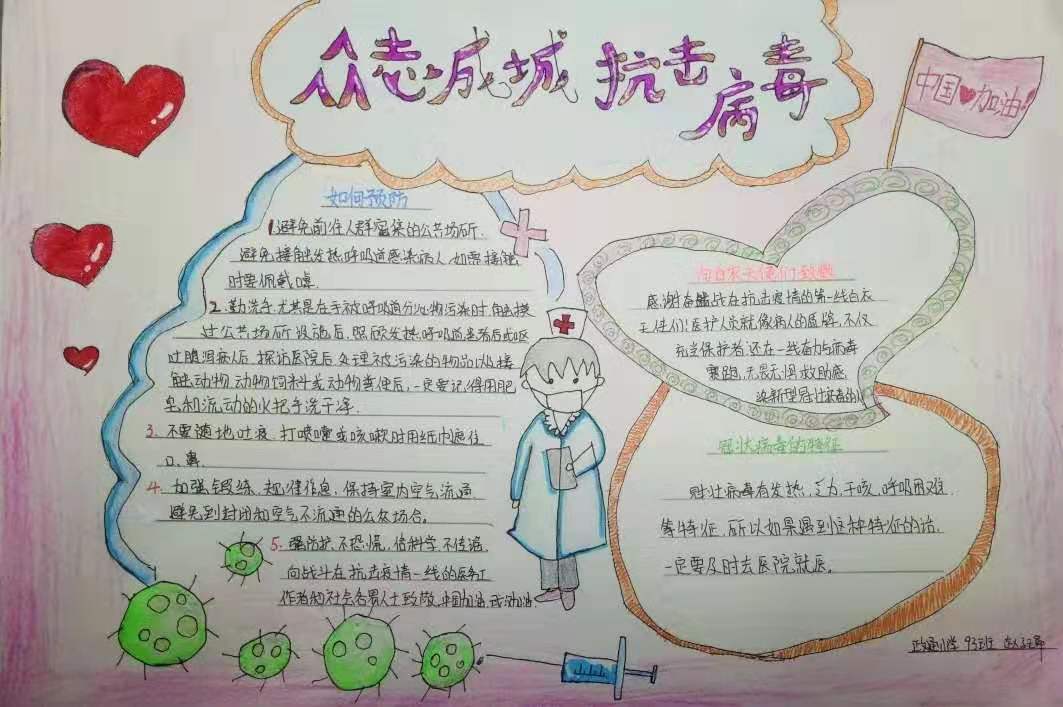 众志成城 抗击病毒
中国加油!
如何预防
1.避免前往人群密集的公共场所.
避免接触发热呼吸道感染病人,如果接触
时要佩戴口罩.
2.勤洗手.尤其是在手被呼吸道分泌物污染时、触摸
过公共场所设施后、照顾发热呼吸道患者后或呕
吐腹泻病人后、探访医院后、处理被污染的物品以及接
触动物、动物饲料或动物粪便后,一定要记得用肥
皂和流动的水把手洗干净.
3、不要随地吐痰,打喷嚏或咳嗽时用纸巾遮住
口、鼻.
4、加强锻练,规律作息,保持室内空气流通
避免到封闭和空气不流通的公众场合。
5、强防护,不恐慌,信科学,不传谣.
向战斗在抗击疫情一线的医务工
作者和社会各界人士致敬,中国加油,武汉加油.
向白衣天使们致敬
感谢奋战在抗击疫情的第一线白衣
天使们!医护人员就像病人的盾牌,不仅
充当保护者,还在一线奋力与病毒
赛跑,无畏无惧救助感
染新型冠状病毒的人
冠状病毒的特征
冠状病毒有发热,乏力,干咳,呼吸困难
等特征,所以如果遇到这种特征的话
一定要及时去医院就医。
小学 93班